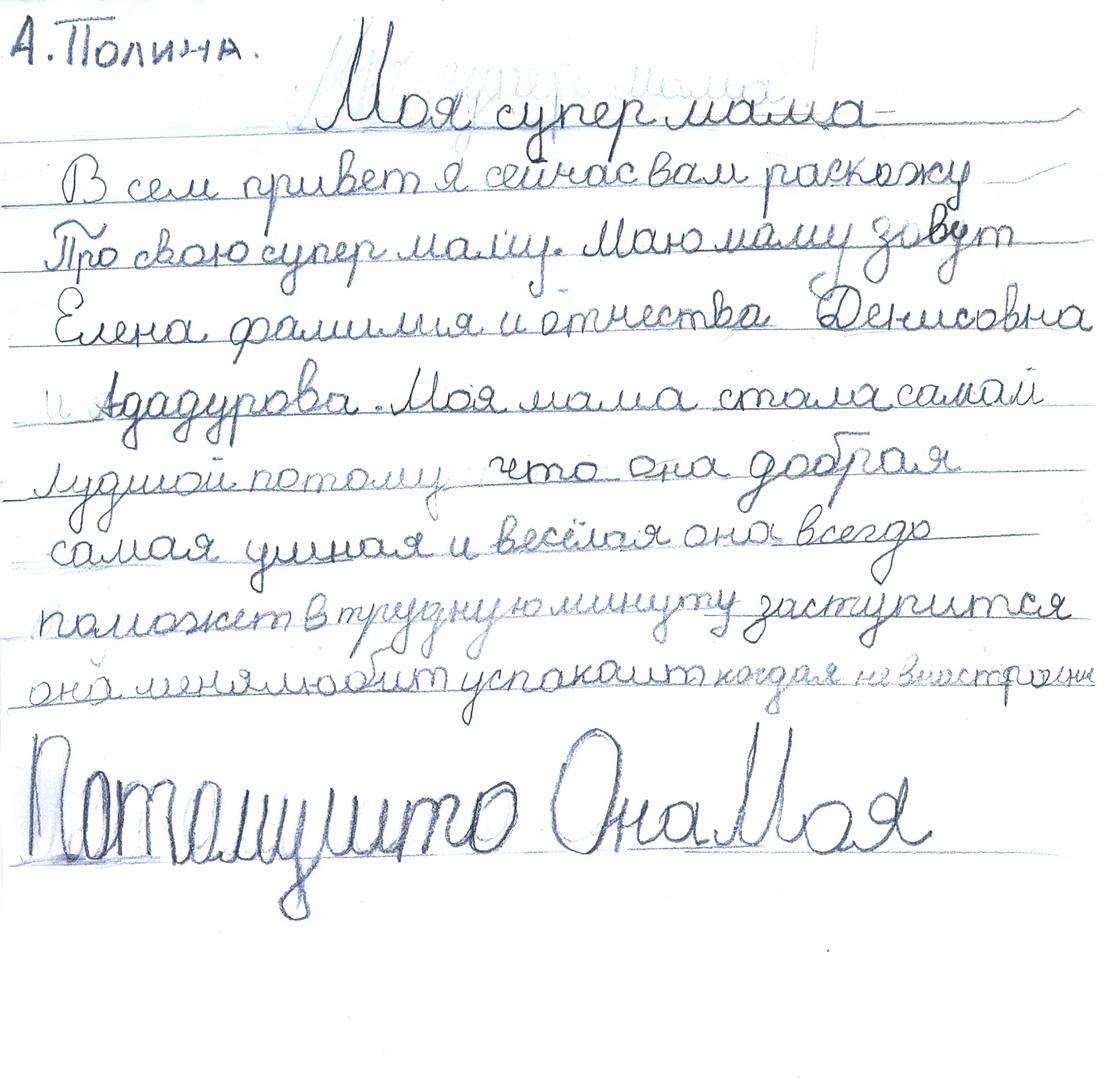 А.Полина.
Моя супер мама
В сем привет я сейчас вам раскожу
Про свою супер маму. Маю маму зовут
Елена фамилия и отчества Денисовна
и Ададурова. Моя мама стала самай
лудшой потому что она добрая
самая умная и весёлая она всегдо
поможет в трудную минуту заступится
она меня любит успакаит когда я не в настроени
Потамушто Она Моя